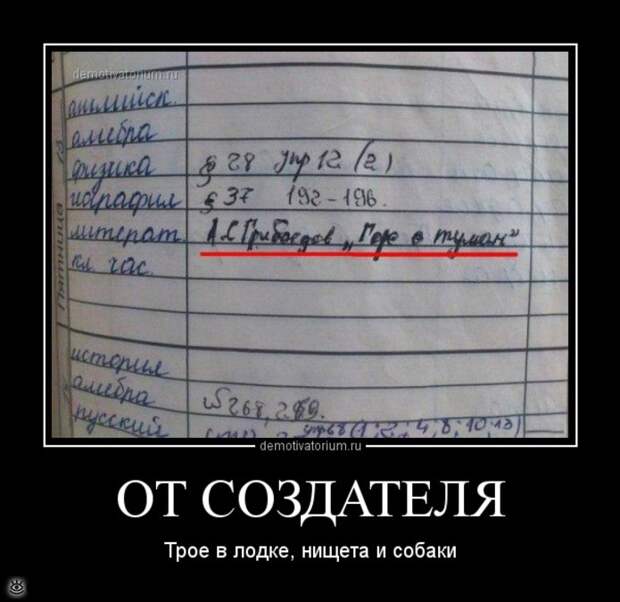 demotivatorium.ru
Пятница
английск.
алгебра
физика § 28 упр 12 (2)
география § 37 192-196.
литерат. А.С Грибоедов „Горе о туман"
кл. час.
история
алгебра №268, 269.
русский
demotivatorium.ru
ОТ СОЗДАТЕЛЯ
Трое в лодке, нищета и собаки